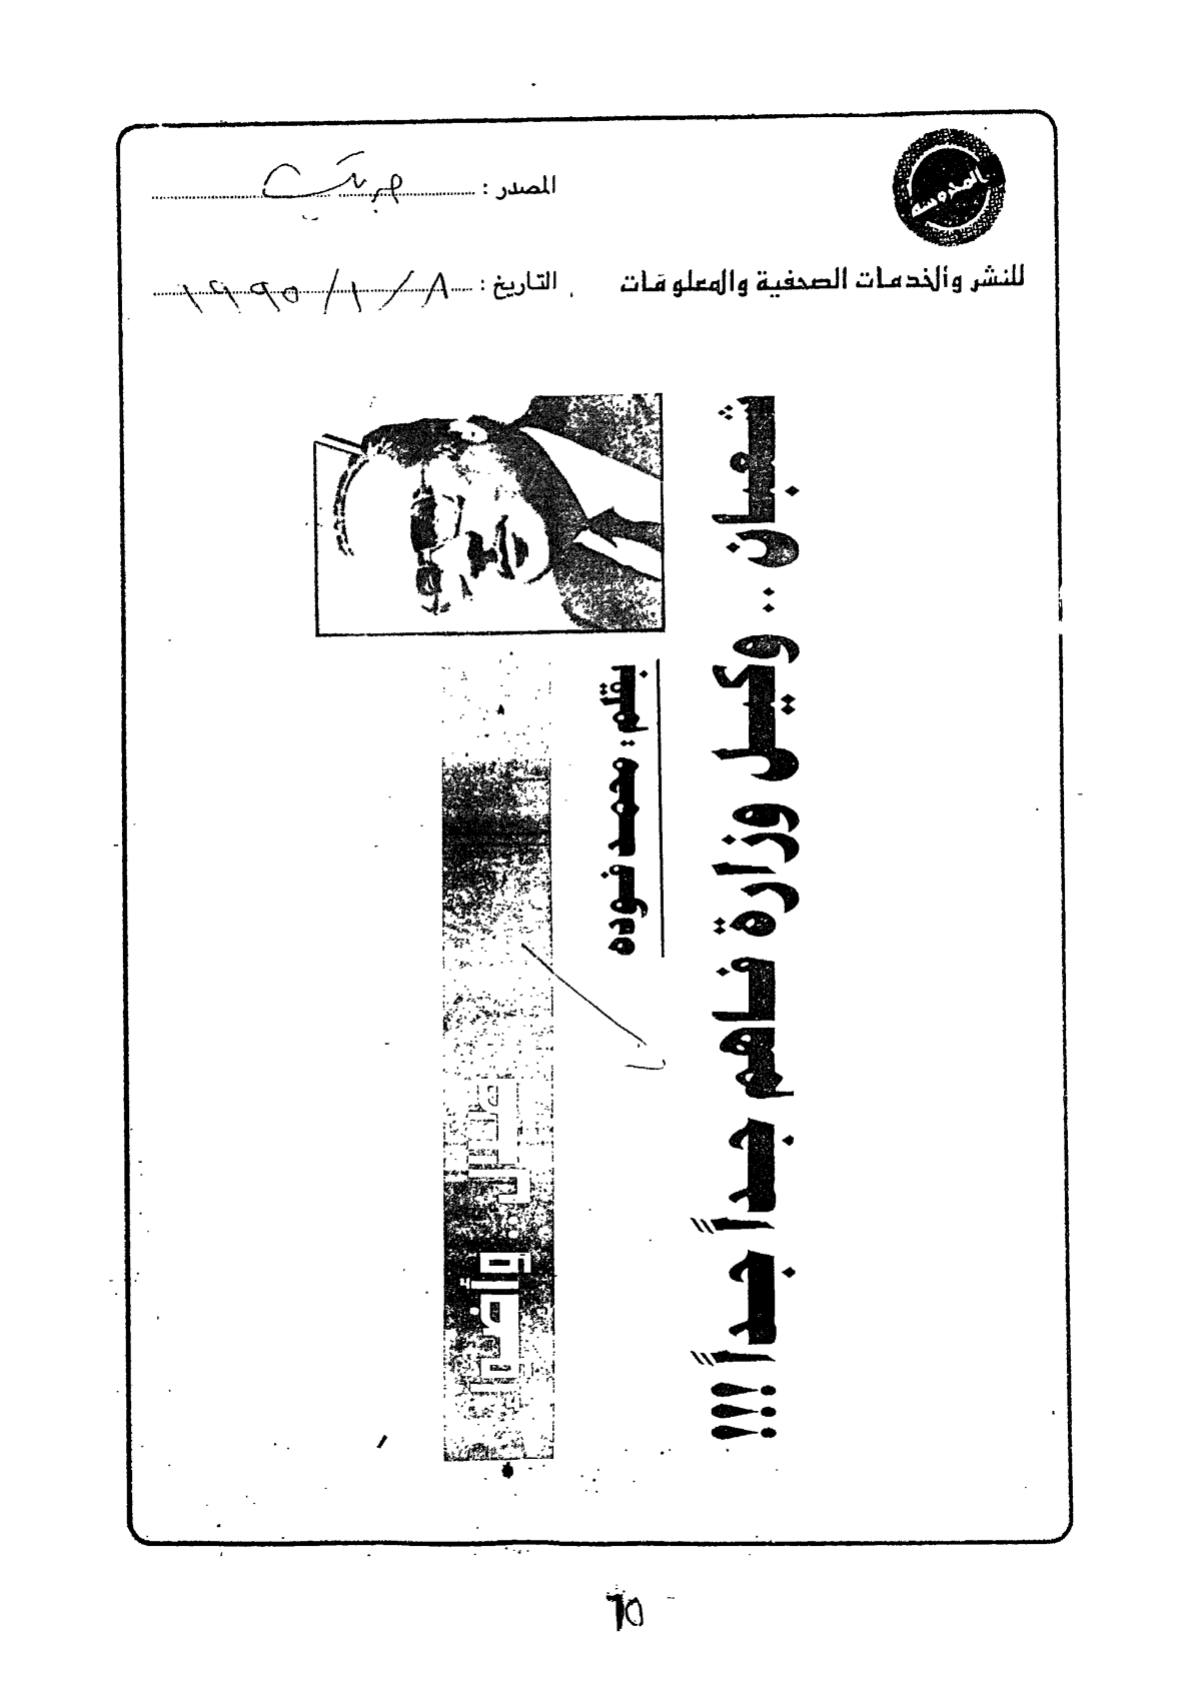 المحروسة
المصدر :
للنشر والخدمات الصحفية والمعلومات
التاريخ : ٨ / ١ / ١٩٩٥
شعبان .. وكيل وزارة فاهم جداً جداً !!!
بقلم : محمد فوده
٦٥